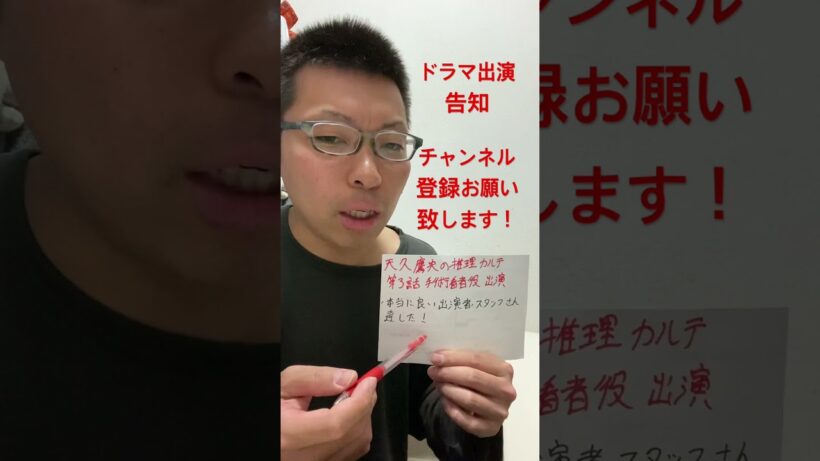 ドラマ出演
告知
チャンネル
登録お願い
致します！
天久鷹央の推理カルテ
第3話 手術 患者役 出演
・本当に良い出演者、スタッフさん
達した！
ンネル
録お願い
します！
推理カルテ
患者役 出演
演者、スタッフさん